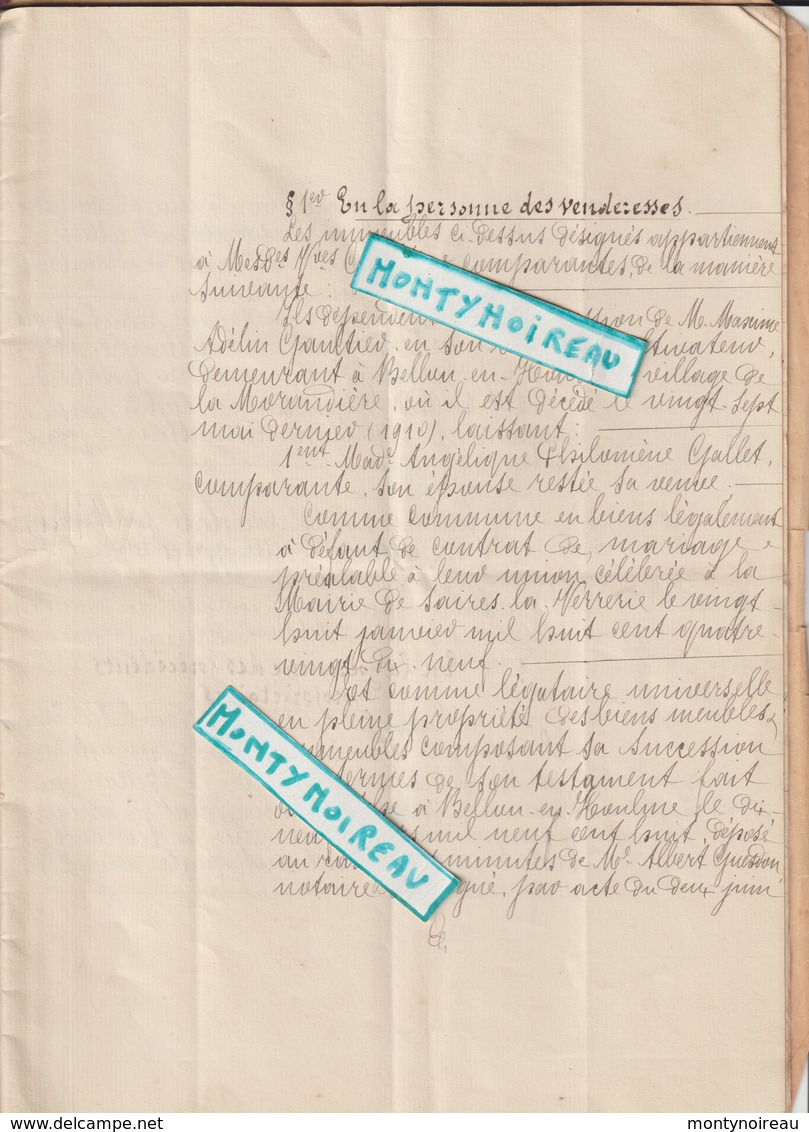 § 1er En la personne des venderesses.
Les immeubles ci-dessus désignés appartiennent
à Mesdes Vves comparantes, de la manière
suivante :
Ils dépendent de M. Maxime
Adélin Gaultier, en son
demeurant à Bellou-en-Houlme village de
la Morandière, où il est décédé le vingt-sept
mai dernier (1910), laissant :
1ent Made Angélique Philomène Gallet,
comparante, son épouse restée sa veuve.
Comme commune en biens légalement
à défaut de contrat de mariage
préalable à leur union célébrée à la
Mairie de Saires-la-Verrerie le vingt
huit janvier mil huit cent quatre-
vingt-dix-neuf.
Et comme légataire universelle
en pleine propriété des biens meubles &
immeubles composant sa succession
termes de son testament fait
à Bellou-en-Houlme le dix-
neuf mil neuf cent huit, déposé
au minutes de Me Albert Guesdon
notaire par acte du deux juin
MONTYNOIREAU
MONTYNOIREAU
delcampe.net
montynoireau